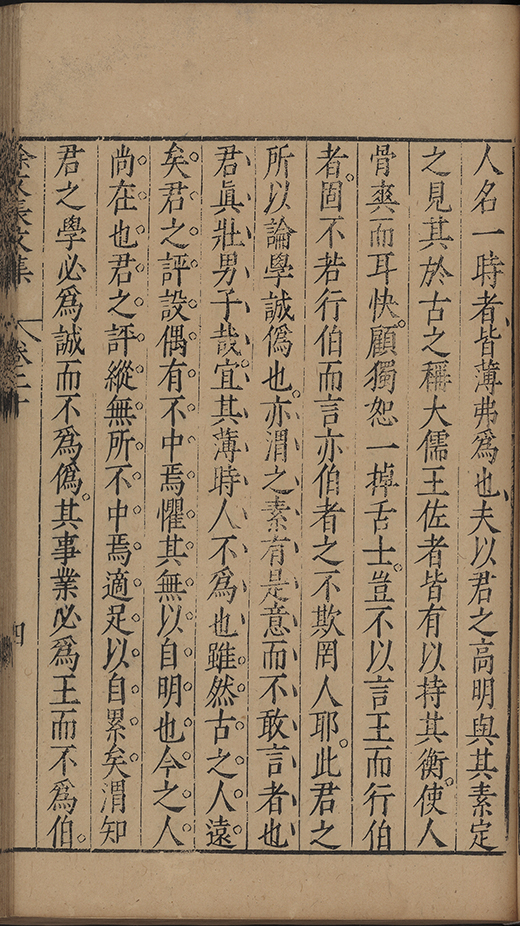 人名一時者皆薄弗爲也夫以君之高明與其素定
之見其於古之稱大儒王佐者皆有以持其衡使人
骨爽而耳快顧獨恕一掉舌士豈不以言王而行伯
者固不若行伯而言亦伯者之不欺罔人耶此君之
所以論學誠僞也亦渭之素有是意而不敢言者也
君眞壯男子哉宜其薄時人不爲也雖然古之人遠
矣君之評設偶有不中焉懼其無以自明也今之人
尚在也君之評縱無所不中焉適足以自累矣渭知
君之學必爲誠而不爲僞其事業必爲王而不爲伯
徐文長文集 卷二十 四